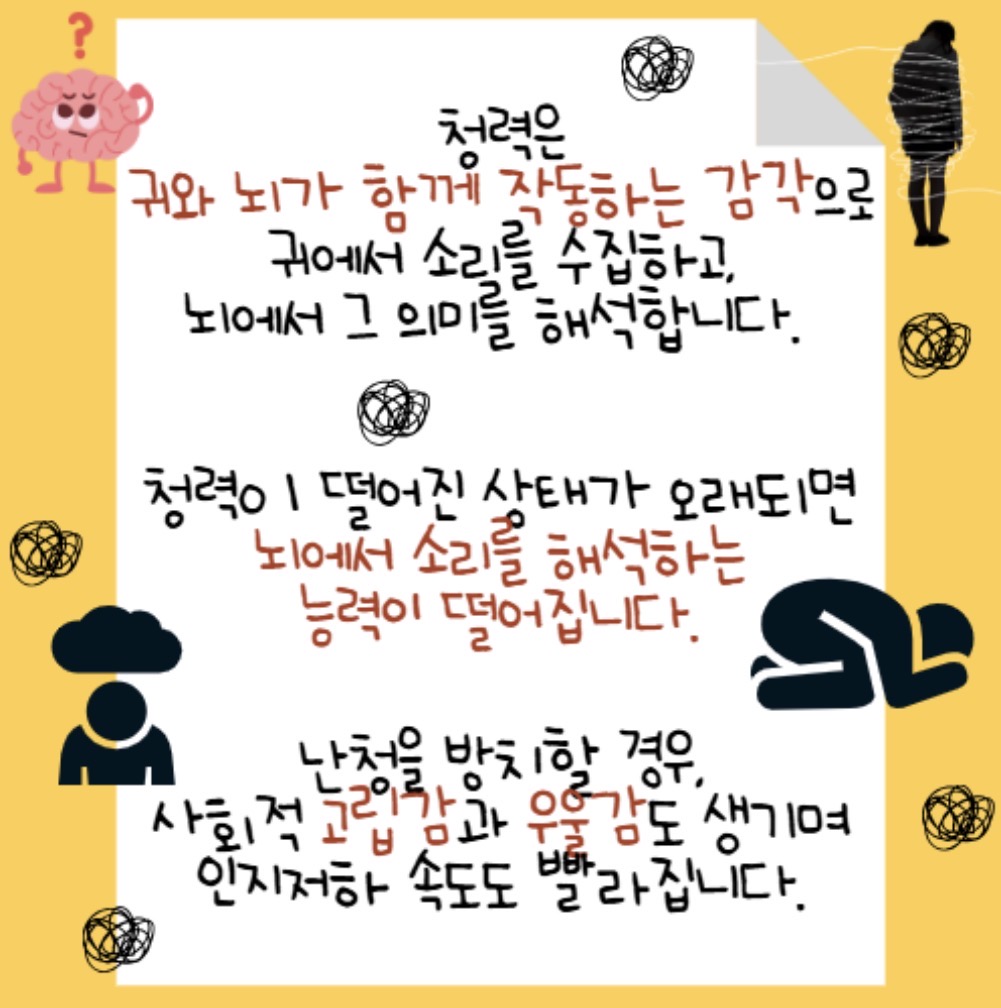 ?
청력은
귀와 뇌가 함께 작동하는 감각으로
귀에서 소리를 수집하고,
뇌에서 그 의미를 해석합니다.
청력이 떨어진 상태가 오래되면
뇌에서 소리를 해석하는
능력이 떨어집니다.
난청을 방치할 경우,
사회적 고립감과 우울감도 생기며
인지저하 속도도 빨라집니다.